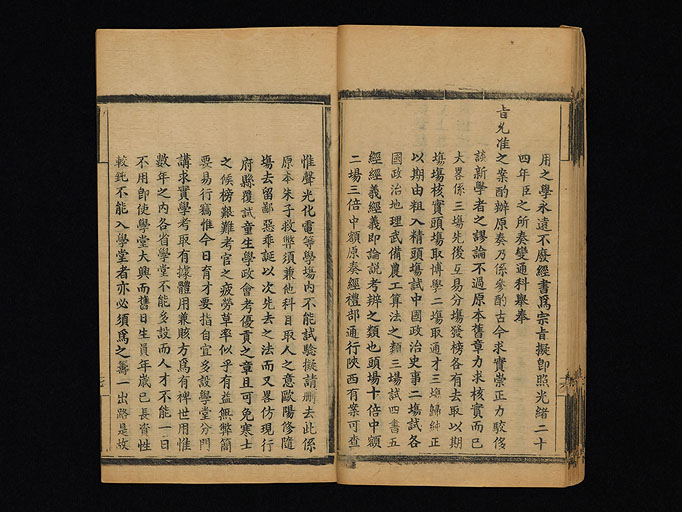 用之學永遠不廢經書爲宗旨擬卽照光緒二十
四年臣之所奏變通科舉奉
旨允准
之案酌辦原奏乃係參酌古今求實崇正力駁俢
談新學者之謬論不過原本舊章力求核實而已
大畧係三塲先後互易分塲發榜各有去取以期
塲塲核實頭塲取博學二塲取通才三塲歸純正
以期由粗入精頭塲試中國政治史事二塲試各
國政治地理武備農工算法之類三塲試四書五
經經義經義卽論說考辨之類也頭塲十倍中額
二塲三倍中額原奏經禮部通行陝西有案可查
惟聲光化電等學塲内不能試驗擬請删去此係
原本朱子救弊須兼他科目取人之意歐陽修隨
塲去留鄙惡乖誕以次先去之法而又畧仿現行
府縣覆試童生學政會考優貢之章且可免寒士
之候榜艱難考官之疲勞草率似乎有益無弊簡
要易行竊惟今日育才要指自宜多設學堂分門
講求實學考取有據體用兼賅方爲有裨世用惟
數年之内各省學堂不能多設而人才不能一日
不用卽使學堂大興而舊日生員年歲已長資性
較鈍不能入學堂者亦必須爲之籌一出路是故